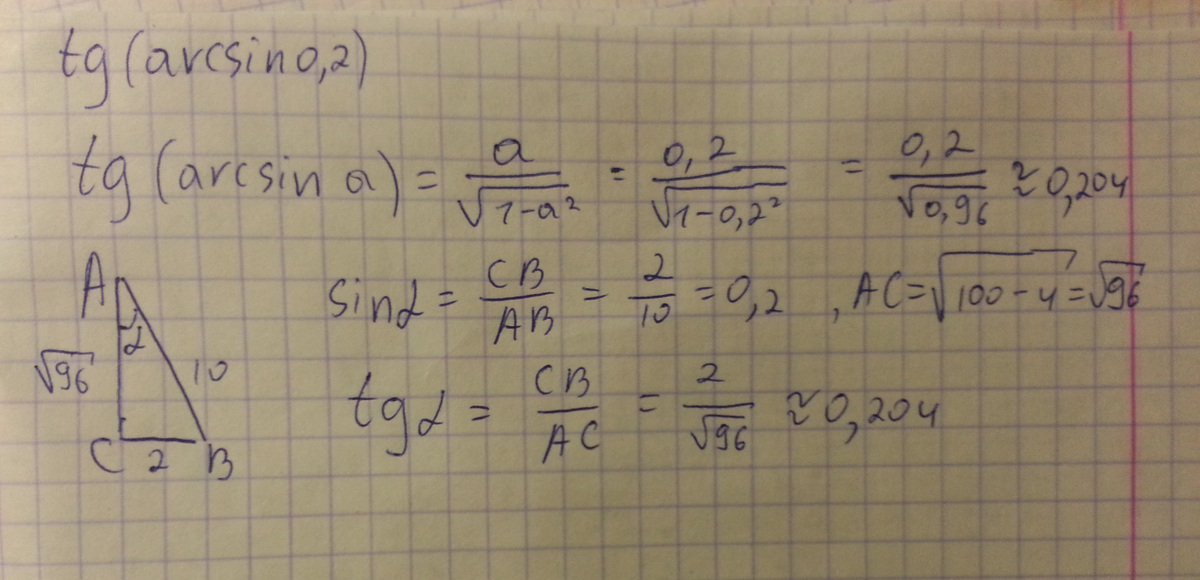 tg(arcsin0,2)
tg(arcsin a) = a/√(1-a²) = 0,2/√(1-0,2²) = 0,2/√0,96 ≈ 0,204
A
sinα = CB/AB = 2/10 = 0,2 , AC = √(100-4) = √96
α
√96 10
tgα = CB/AC = 2/√96 ≈ 0,204
C 2 B